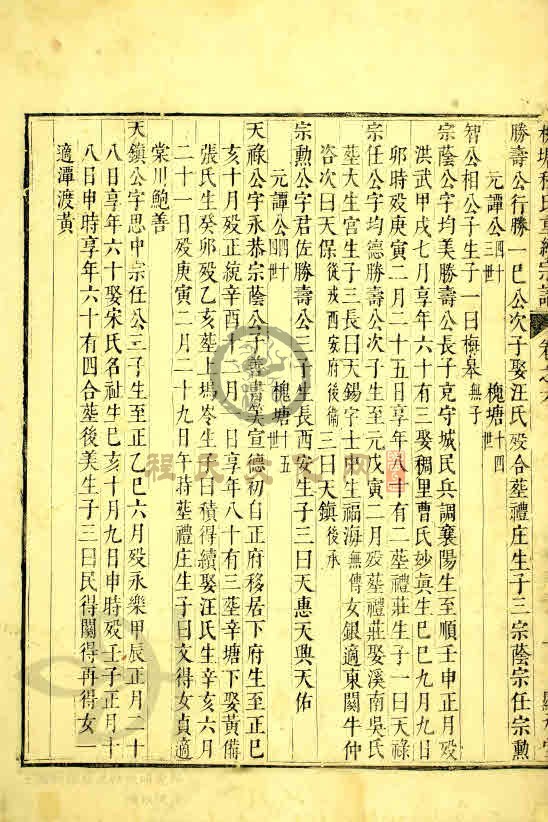 勝壽公行勝一巳公次子娶汪氏歿合塟禮庄生子三宗蔭宗任宗勲
元譚公四十三世 槐塘十四世
智公相公子生子一曰梅臯無子
宗蔭公字均美勝壽公長子克守城民兵調襄陽生至順壬申正月歿
洪武甲戌七月享年六十有三娶稠里曹氏妙眞生巳巳九月九日
卯時歿庚寅二月二十五日享年八十有二塟禮莊生子一曰天祿
宗任公字均德勝壽公次子生至元戊寅二月歿塟禮莊娶溪南吳氏
塟大生宫生子三長曰天錫字士中生福海無傳女銀適東關牛仲
咨次曰天保後戍西安府後衞三曰天鎮後承
宗勲公字君佐勝壽公三子生長西安生子三曰天惠天與天佑
元譚公四十四世 槐塘十五世
天祿公字永恭宗蔭公子善書筭宣德初自正府移居下府生至正巳
亥十月歿正統辛酉十二月 日享年八十有三塟辛塘下娶黃備
張氏生癸卯歿乙亥塟上塢岺生子曰積得續娶汪氏生辛亥六月
二十一日歿庚寅二月二十九日午時塟禮庄生子曰文得女貞適
棠川鮑善
天鎮公字思中宗任公三子生至正乙巳六月歿永樂甲辰正月二十
八日享年六十娶宋氏名祉生巳亥十月九日申時歿壬子正月十
八日申時享年六十有四合塟後美生子三曰民得關得再得女一
適潭渡黃
程氏文化网